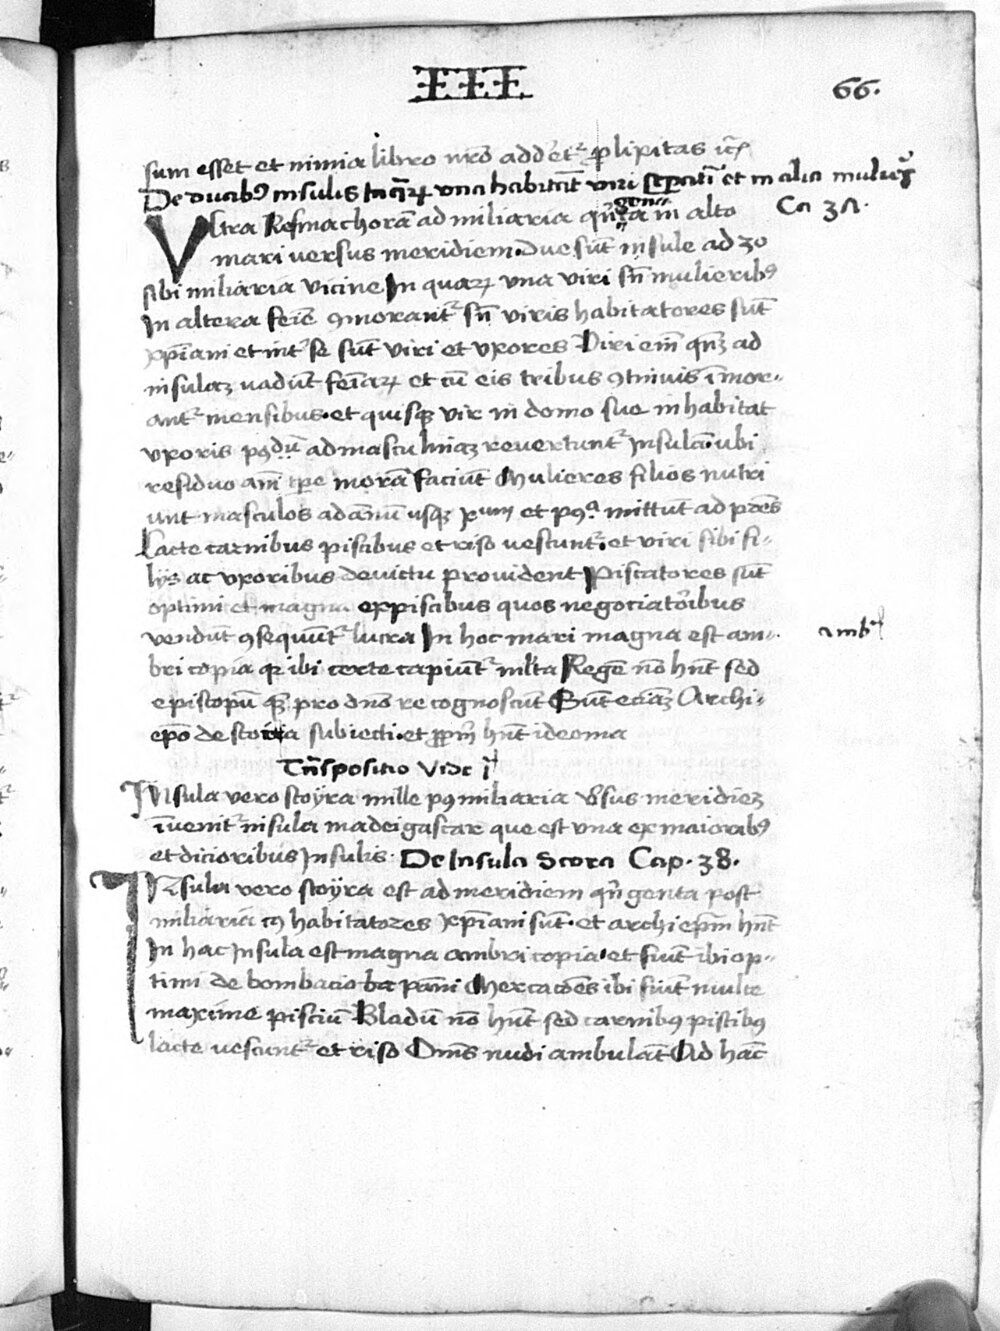 III
66.
sum esset et nimia libro nr̄o adder̄et ꝓlixitas
De duabꝰ insulis In q̄rꝝ vna habitāt viri seperati et in alia mulieres
Ca 37.
Vltra Resmachorā ad miliaria qn̄gēta in alto
mari versus meridiem. Due sūt insule ad 30
sibi miliaria vicine In quarꝝ vna viri sn̄ mulieribꝰ
In altera feīe ꝯmorant᷑ sn̄ viris habitatores sūt
xp̄iani et int᷑ se sūt viri et vxores Viri em̄ qn̄qꝫ ad
insulaꝫ vadūt feīarꝝ et cū eis tribus ꝯtinuis ī mor-
ant᷑ mensibus. et quisqꝫ vir in domo sue inhabitat
vxoris ad masculinaꝫ revertunt᷑ Insulā. ubi
residuo ann̄i tp̄e morā faciūt Mulieres filios nutri
unt masculos ad annū usqꝫ xiiiim et pꝰqᵃ mittūt ad pr̄es
Lacte carnibus piscibus et riso vescunt᷑. et viri sibi fi-
lijs ac vxoribus de victu provident Piscatores sūt
optimi et magna ex piscibus quos negociatōribus
vendūt ꝯsequūt᷑ lucra In hoc mari magna est am-
bri copia qꝛ ibi cete capiūt᷑ ml̄ta Regē nō hn̄t sed
episcopū quē pro dn̄o recognoscūt Sūt eciaꝫ Archi-
ep̄o de scoira subiecti. et ꝓpriū hn̄t ideoma
ambr̄
Tn̄spositio Vide
Insula vero scoÿra mille pꝰ miliaria v̄sus meridieꝫ
īvenit᷑ insula madeigascar que est vna ex maioribꝰ
et dicioribus Insulis. De Insula Scora Cap. 38.
Insula vero scoÿra est ad meridiem qn̄genta post
miliaria cꝰ habitatores xp̄iani sūt. et archiep̄m hn̄t
In hac Insula est magna ambri copia. et siūt ibi op-
timi de bombacio panni Mercatōes ibi fiūt multe
maxime pisciū Bladū nō hn̄t sed carnibꝰ piscibꝰ
lacte vescunt᷑ et riso Om̄s nudi ambulāt Ad hāc